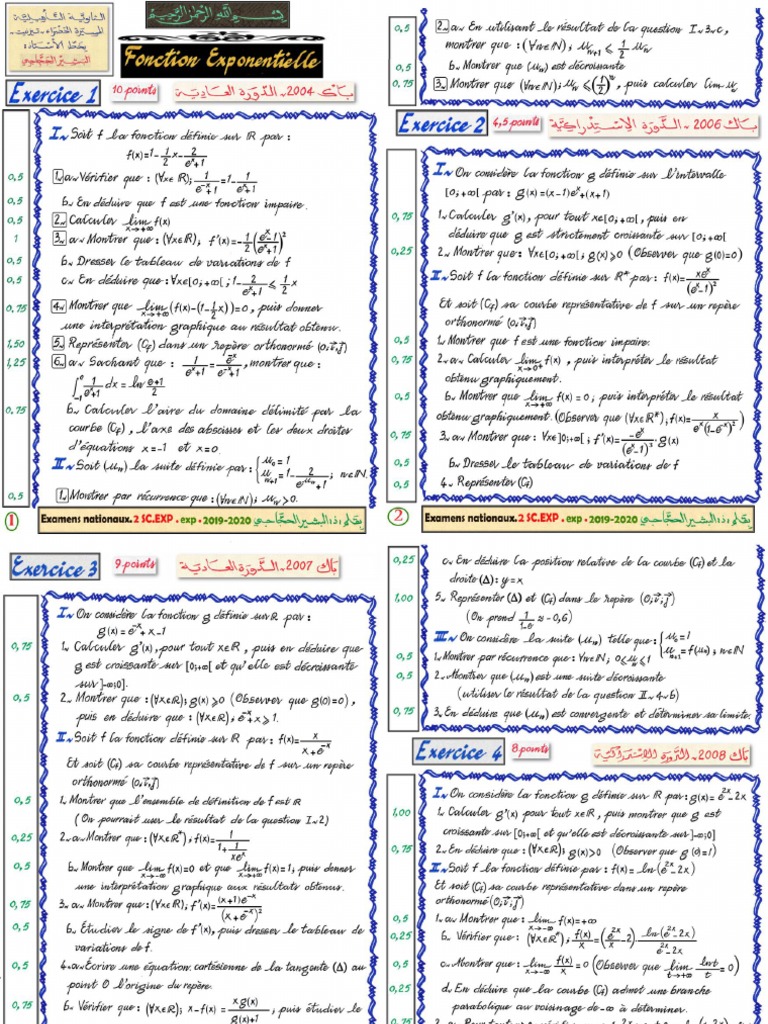 الثانوية التأهيلية
المسيرة الخضراء - تيزنيت -
بخط الأستاذ:
البشير الحجاجي
بسم الله الرحمن الرحيم
Fonction Exponentielle
Exercice 1 10 points باك 2004 - الدورة العادية
I Soit f la fonction définie sur ℝ par :
f(x)=1-1/2 x-2/(e^x+1)
0,5 1 a Vérifier que : (∀x∈ℝ); 1/(e^-x+1)=1-1/(e^x+1)
0,5 b En déduire que f est une fonction impaire.
0,5 2 Calculer lim x→+∞ f(x)
1 3 a Montrer que : (∀x∈ℝ); f'(x)=-1/2((e^x-1)/(e^x+1))^2
0,5 b Dresser le tableau de variations de f
0,5 c En déduire que : ∀x∈[0;+∞[ ; 1-2/(e^x+1)≤1/2 x
0,75 4 Montrer que lim x→+∞ (f(x)-(1-1/2 x))=0, puis donner
une interprétation graphique au résultat obtenu.
1,50 5 Représenter (Cf) dans un repère orthonormé (o,i,j)
1,25 6 a Sachant que : 1/(e^x+1)=e^-x/(e^-x+1), montrer que :
∫ -1 0 1/(e^x+1) dx = ln (e+1)/2
0,75 b Calculer l'aire du domaine délimité par la
courbe (Cf), l'axe des abscisses et les deux droites
d'équations x=-1 et x=0.
II Soit (un) la suite définie par : {u0=1
un+1=1-2/(e^un+1) ; n∈ℕ
0,5 1 Montrer par récurrence que : (∀n∈ℕ); un>0.
1 Examens nationaux.2 SC.EXP . exp . 2019-2020 بقلم: ذ: البشير الحجاجي
0,5 2 a En utilisant le résultat de la question I 3 c,
montrer que : (∀n∈ℕ); un+1≤1/2 un
0,5 b Montrer que (un) est décroissante
0,75 3 Montrer que (∀n∈ℕ); un≤(1/2)^n, puis calculer lim un
Exercice 2 4,5 points باك 2006 - الدورة الإستدراكية
I On considère la fonction g définie sur l'intervalle
[0;+∞[ par : g(x)=(x-1)e^x+(x+1)
0,75 1 Calculer g'(x), pour tout x∈[0;+∞[, puis en
déduire que g est strictement croissante sur [0;+∞[
0,25 2 Montrer que : ∀x∈[0;+∞[; g(x)≥0 (Observer que g(0)=0)
II Soit f la fonction définie sur ℝ* par : f(x)=xe^x/(e^x-1)^2
Et soit (Cf) sa courbe représentative de f sur un repère
orthonormé (o,i,j)
0,5 1 Montrer que f est une fonction impaire.
0,75 2 a Calculer lim x→0+ f(x), puis interpréter le résultat
obtenu graphiquement.
0,5 b Montrer que lim x→+∞ f(x)=0; puis interpréter le résultat
obtenu graphiquement. (Observer que (∀x∈ℝ*); f(x)=x/(e^x(1-e^-x)^2)
0,75 3 a Montrer que : ∀x∈]0;+∞[; f'(x)=-e^x/(e^x-1)^3 . g(x)
0,5 b Dresser le tableau de variations de f
0,5 4 Représenter (Cf)
2 Examens nationaux.2 SC.EXP . exp . 2019-2020 بقلم: ذ: البشير الحجاجي
Exercice 3 9 points باك 2007 - الدورة العادية
I On considère la fonction g définie sur ℝ par :
g(x)=e^-x+x-1
0,75 1 Calculer g'(x), pour tout x∈ℝ, puis en déduire que
g est croissante sur [0;+∞[ et qu'elle est décroissante
sur ]-∞;0].
0,5 2 Montrer que : (∀x∈ℝ); g(x)≥0 (Observer que g(0)=0),
puis en déduire que : (∀x∈ℝ); e^-x+x≥1.
II Soit f la fonction définie sur ℝ par : f(x)=x/(x+e^-x)
Et soit (Cf) sa courbe représentative de f sur un repère
orthonormé (o,i,j)
0,5 1 Montrer que l'ensemble de définition de f est ℝ
(On pourrait user le résultat de la question I 2)
0,25 2 a Montrer que : (∀x∈ℝ*); f(x)=1/(1+1/(xe^x))
b Montrer que lim x→-∞ f(x)=0 et que lim x→+∞ f(x)=1; puis donner
une interprétation graphique aux résultats obtenus.
0,75 3 a Montrer que : (∀x∈ℝ); f'(x)=(x+1)e^-x/(x+e^-x)^2
0,5 b Étudier le signe de f'(x), puis dresser le tableau de
variations de f.
0,5 4 a Écrire une équation cartésienne de la tangente (Δ) au
point O l'origine du repère.
0,75 b Vérifier que : (∀x∈ℝ); x-f(x)=xg(x)/(g(x)+1); puis étudier le
0,25 c En déduire la position relative de la courbe (Cf) et la
droite (Δ): y=x
1,00 5 Représenter (Δ) et (Cf) dans le repère (O,i,j)
(On prend 1/(1-e)≈-0,6)
III On considère la suite (un) telle que : {u0=1
un+1=f(un); n∈ℕ
0,5 1 Montrer par récurrence que : ∀n∈ℕ; 0≤un≤1
0,5 2 Montrer que (un) est une suite décroissante
(utiliser le résultat de la question II 4 b)
0,75 3 En déduire que (un) est convergente et déterminer sa limite.
Exercice 4 8 points باك 2008 - الدورة الإستدراكية
I On considère la fonction g définie sur ℝ par: g(x)=e^2x-2x
1,00 1 Calculer g'(x) pour tout x∈ℝ, puis montrer que g est
croissante sur [0;+∞[ et qu'elle est décroissante sur ]-∞;0]
0,75 2 En déduire que : (∀x∈ℝ); g(x)>0 (Observer que g(0)=1)
II Soit f la fonction définie par : f(x)=ln(e^2x-2x)
Et soit (Cf) sa courbe représentative dans un repère
orthonormé (o,i,j)
0,5 1 a Montrer que : lim x→-∞ f(x)=+∞
0,25 b Vérifier que : (∀x∈ℝ*); f(x)/x=(e^2x/x-2).ln(e^2x-2x)/(e^2x-2x)
0,5 c Montrer que : lim x→-∞ f(x)/x=0 (Observer que lim t→+∞ lnt/t=0)
0,25 d En déduire que la courbe (Cf) admet une branche
parabolique au voisinage de -∞ à déterminer.